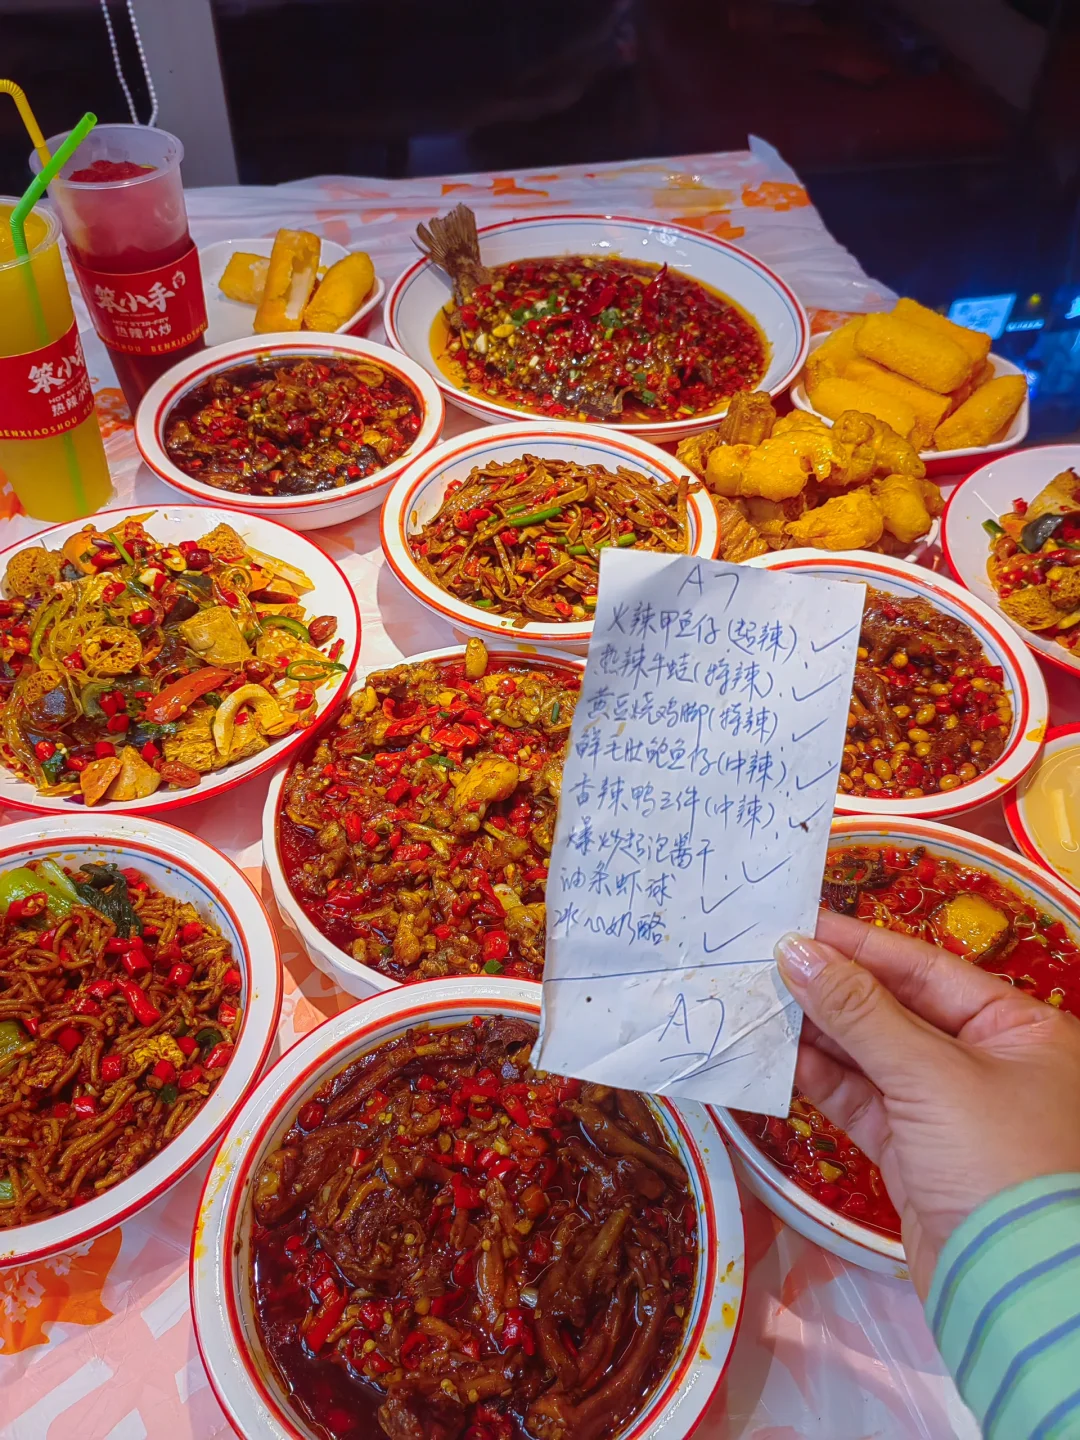 笨小手
HOT STIR-FRY
热辣小炒
BENXIAOSHOU
笨小
热辣小炒
BENXIAOSHOU
A7
火辣甲鱼仔(超辣)
热辣牛蛙(特辣)
黄豆烧鸡脚(特辣)
鲜毛肚鲍鱼仔(中辣)
香辣鸭三件(中辣)
爆炒起泡酱干
油条虾球
冰心奶酪
A7